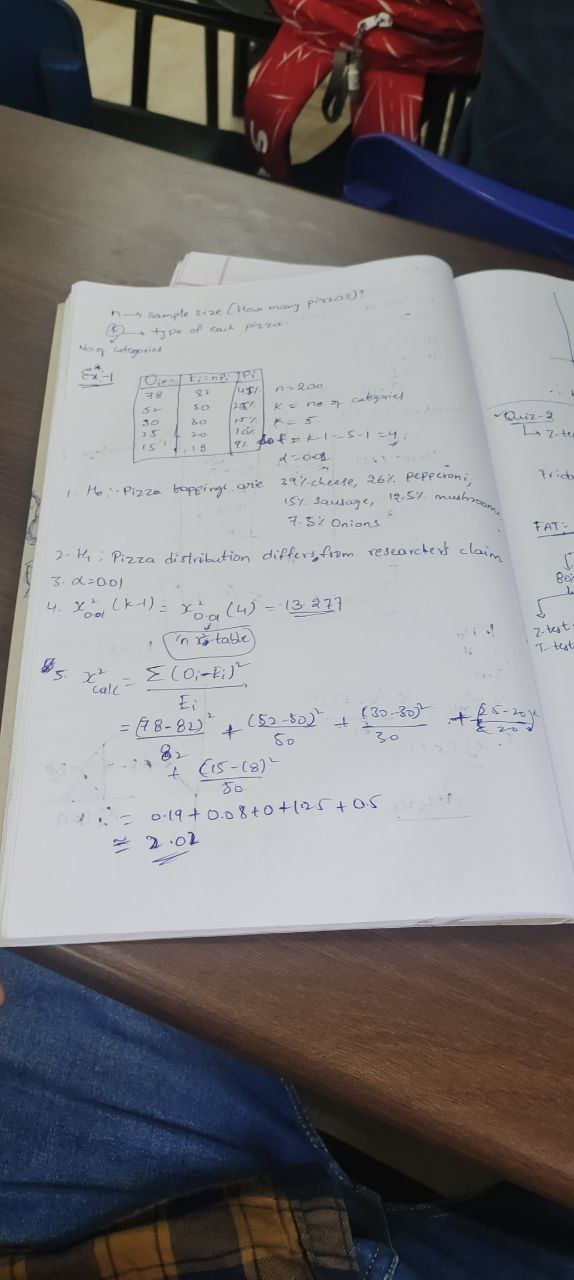 n → sample size (How many pizzas)?
(k) → type of each pizza.
No. of categories
Ex-1
Oi Ei=nPi Pi
78 82 41%
52 50 25%
30 30 15%
25 20 10%
15 18 9%
n=200
k = no. of categories
k = 5
dof = k-1 = 5-1 = 4.
α=0.01
1. H₀: Pizza toppings are 39% cheese, 26% pepperoni,
15% sausage, 12.5% mushroom,
7.5% Onions
2. H₁: Pizza distribution differs from researchers claim
3. α=0.01
4. x²0.01 (k-1) = x²0.01 (4) = 13.277
table
5. x²calc = Σ (Oi-Ei)² / Ei
= (78-82)² / 82 + (52-50)² / 50 + (30-30)² / 30 + (25-20)² / 20
+ (15-18)² / 50
= 0.19+0.08+0+1.25+0.5
≅ 2.02
Quiz-2
↳ Z-te
FAT:
Z-test
T-test